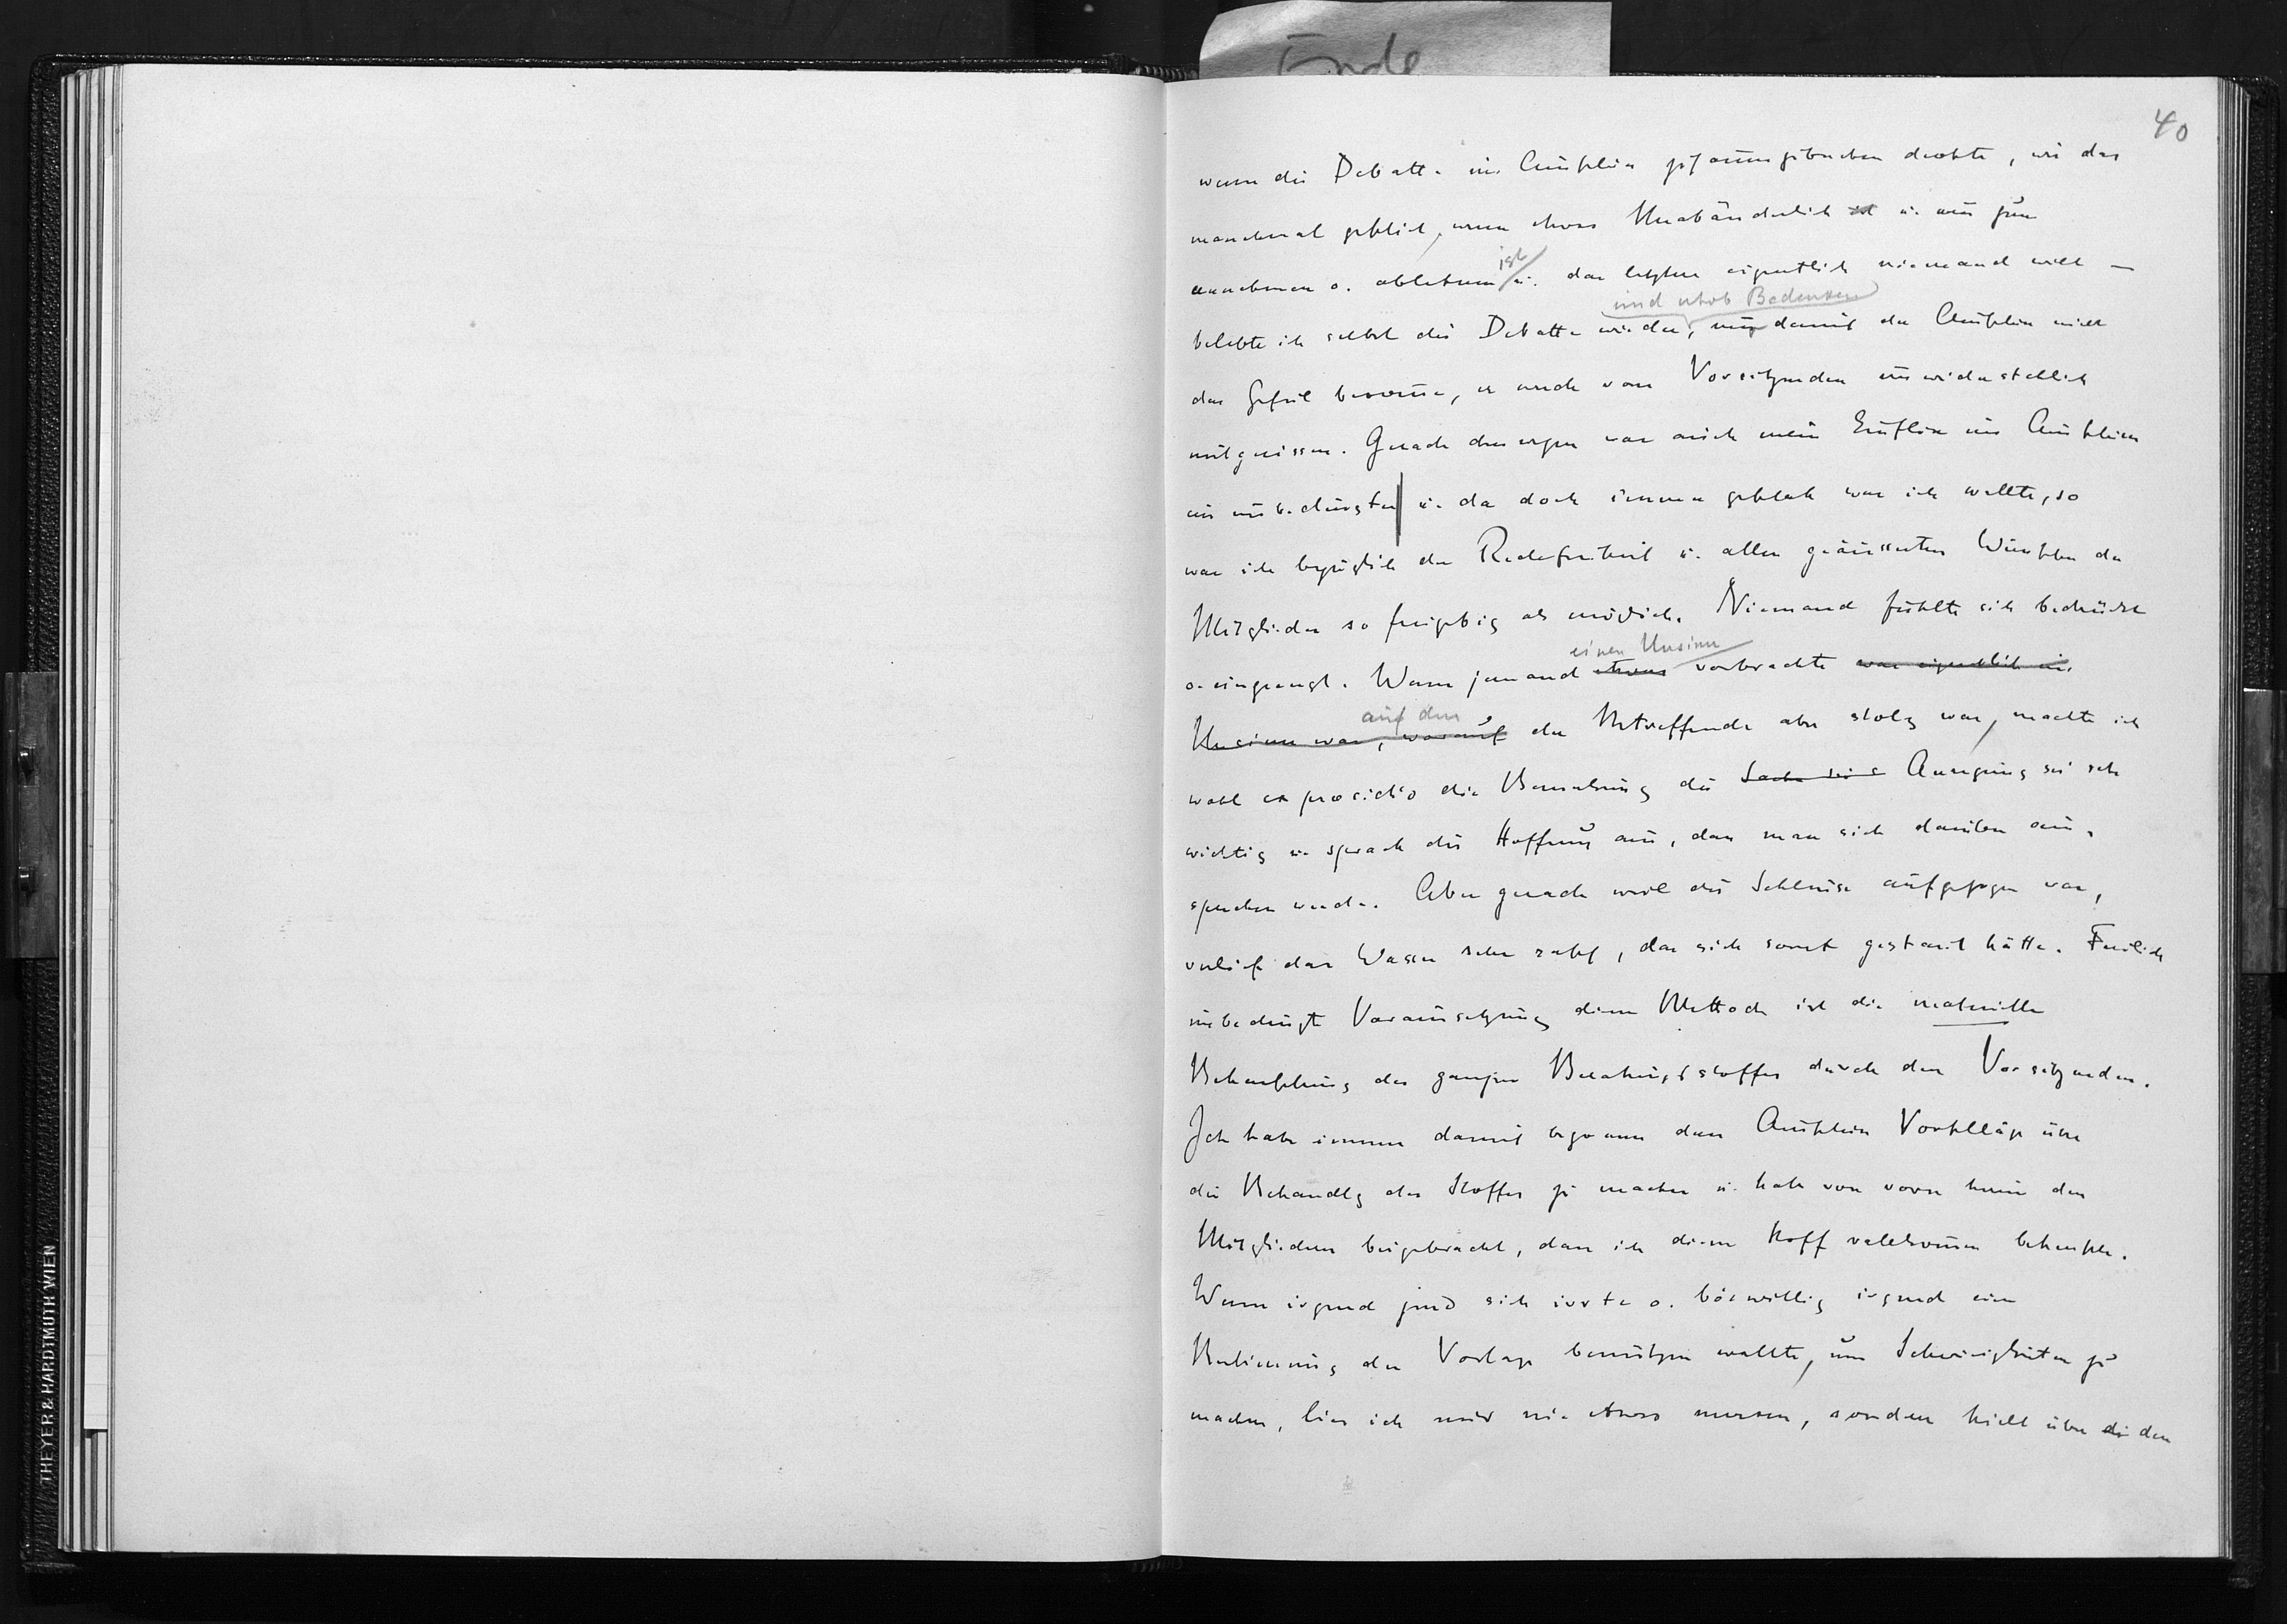 Ende
40
wenn die Debatte im Ausschuss zusammenzubrechen drohte, wie das
manchmal geschieht, wenn etwas Unabänderlich ist u. nur zum
annehmen o. ablehnen ist u. das letztere eigentlich niemand will —
und erhob Bedenken
belebte ich selbst die Debatte wieder, nur damit der Ausschuss nicht
das Gefühl bekomme, er werde vom Vorsitzenden unwiderstehlich
mitgerissen. Gerade deswegen war auch mein Einfluss im Ausschusse
ein unbedingter u. da doch immer geschah was ich wollte, so
war ich bezüglich der Redefreiheit u. allen geäusserten Wünschen der
Mitglieder so freigebig als möglich. Niemand fühlte sich bedrückt
einen Unsinn
o. eingeengt. Wenn jemand etwas vorbrachte was eigentlich ein
auf den
Unsinn war, worauf der Betreffende aber stolz war, machte ich
wohl ex praesidio die Bemerkung die Sache sei Anregung sei sehr
wichtig u. sprach die Hoffnung aus, dass man sich darüber aus-
sprechen werde. Aber gerade weil die Schleuse aufgezogen war,
verlief das Wasser sehr rasch, das sich sonst gestaut hätte. Freilich
unbedingte Voraussetzung dieser Methode ist die materielle
Beherrschung des ganzen Beratungsstoffes durch den Vorsitzenden.
Ich habe immer damit begonnen dem Ausschuss Vorschläge über
die Behandlg des Stoffes zu machen u. habe von vorn herein den
Mitgliedern beigebracht, dass ich diesen Stoff vollkommen beherrsche.
Wenn irgend jmd sich irrte o. böswillig irgend eine
Bestimmung der Vorlage benützen wollte, um Schwierigkeiten zu
machen, lies ich mir nie etwas merken, sondern hielt über die den
THEYER & HARDTMUTH WIEN